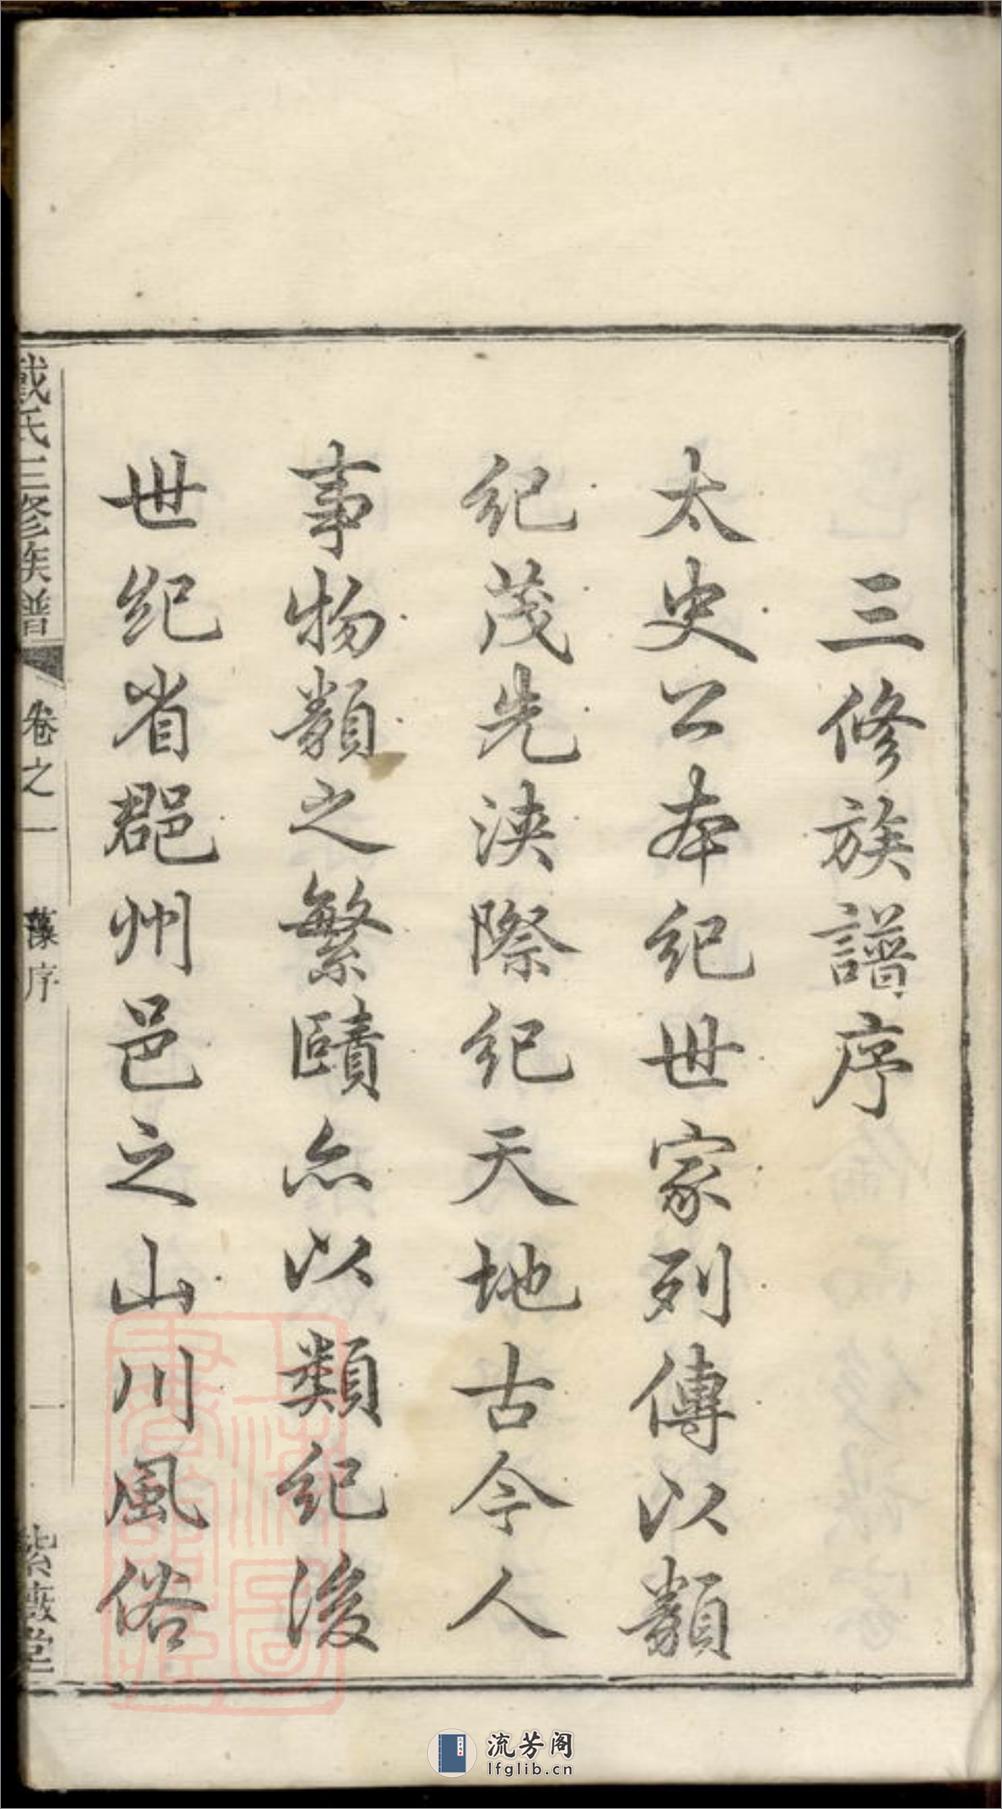 三修族譜序
太史公本紀世家列傳以類
紀茂先浹際紀天地古今人
事物類之繁賾亦以類紀後
世紀省郡州邑之山川風俗
戴氏三修族譜
卷之一
藻序
一
紫薇堂
流芳阁
lfglib.cn